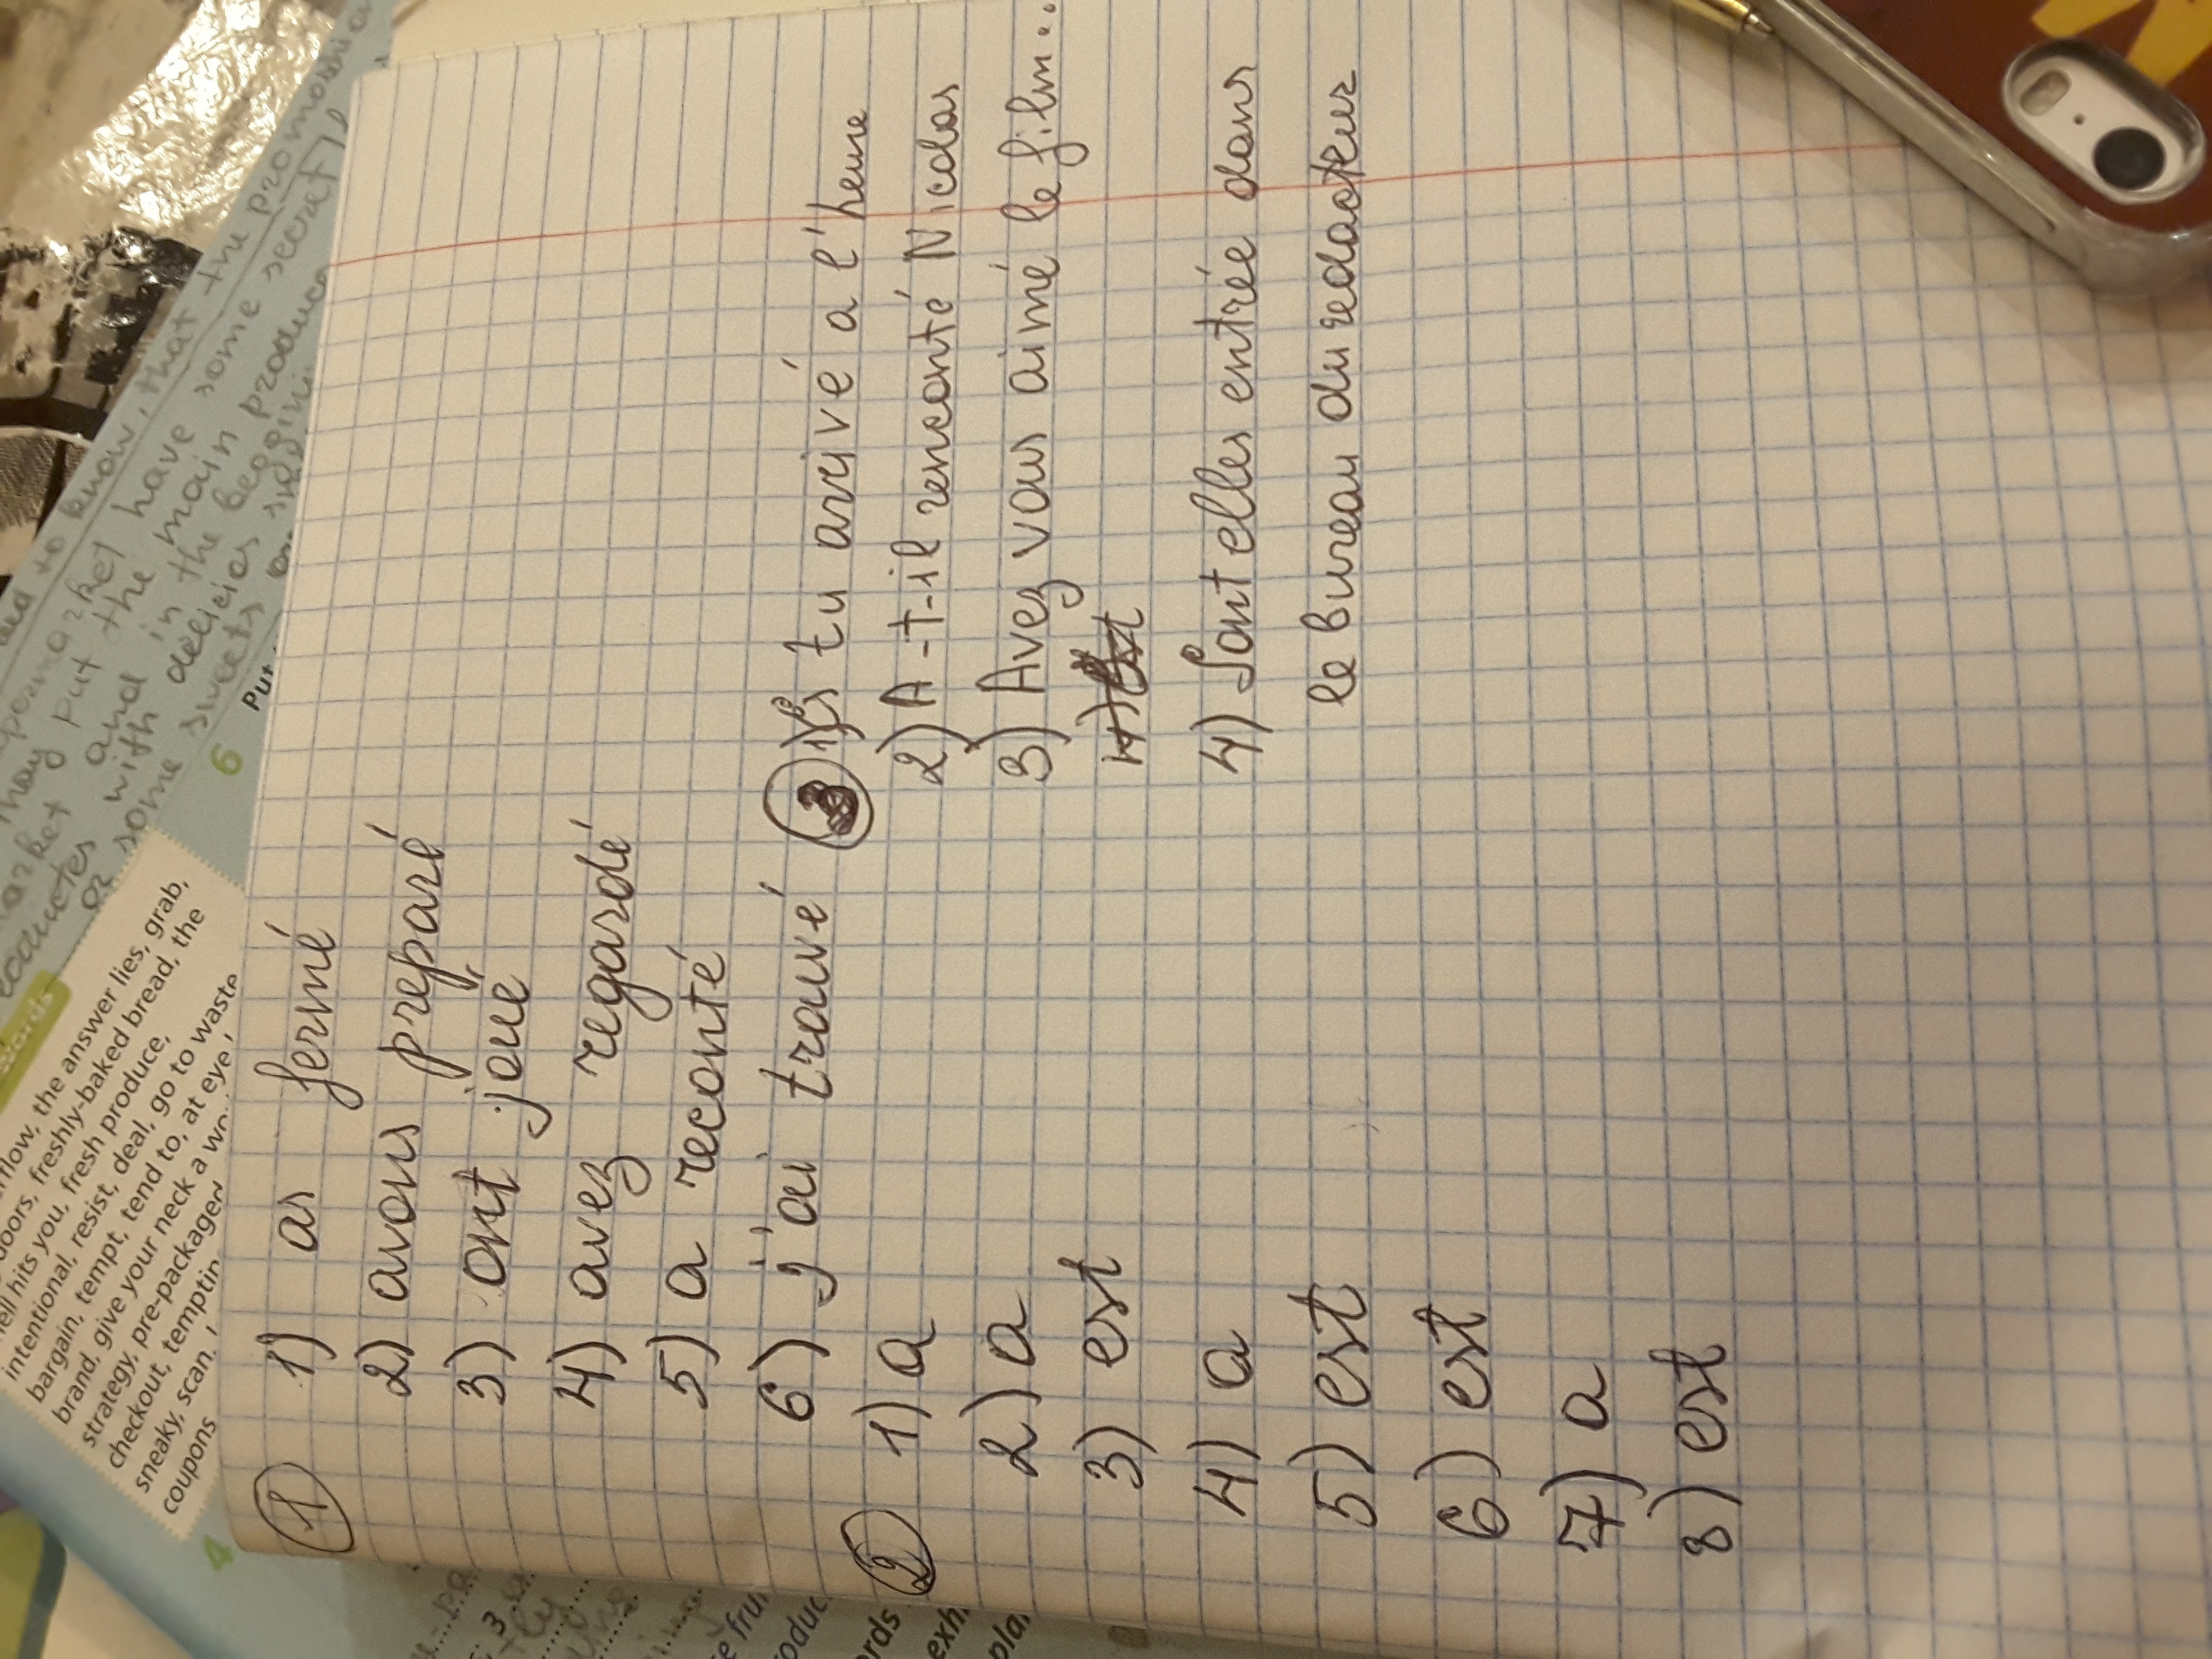 1) 1) as fermé
2) avons preparé
3) ont joué
4) avez regardé
5) a reconté
6) j'ai trouvé
2) 1) a
2) a
3) est
4) a
5) est
6) est
7) a
8) est
3) 1) Es tu arivé a l'heure
2) A-t-il renconté Nicolas
3) Avez vous aimé le film...
4) Sont elles entrée dans
le bureau du redacteur
know, that the promotion
have some secret
put the main produce
and in the beggining
with delicios
some sweets or
6 Put
flow, the answer lies, grab,
doors, freshly-baked bread, the
hits you, fresh produce,
intentional, resist, deal, go to waste
bargain, tempt, tend to, at eye
brand, give your neck a
strategy, pre-packaged
checkout,
sneaky, scan,
coupons
4
3